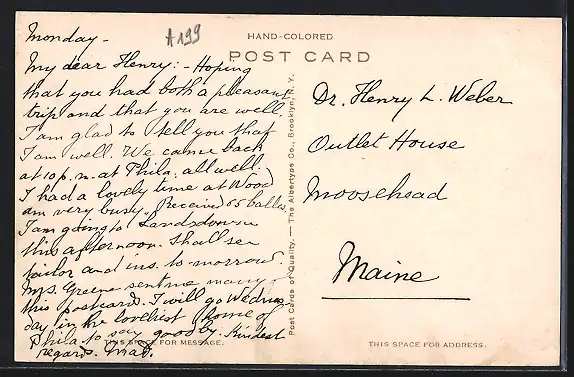 Monday -
A199
HAND-COLORED
POST CARD
My dear Henry: - Hoping
that you had both a pleasant
trip and that you are well.
I am glad to tell you that
I am well. We came back
at 10 p. m. at Phila. all well.
I had a lovely time at Wood
am very busy. Received 65
I am going to Landsdowne
this afternoon. Shall see
tailor and ins. to-morrow.
Mrs. Greene sent me many
this postcard. I will go Wednes
day in the loveliest home of
Phila to say good by. Kindest
regards.
THIS SPACE FOR MESSAGE.
Post Cards of Quality. — The Albertype Co., Brooklyn, N. Y.
Dr. Henry L. Weber
Outlet House
Moosehead
Maine
THIS SPACE FOR ADDRESS.